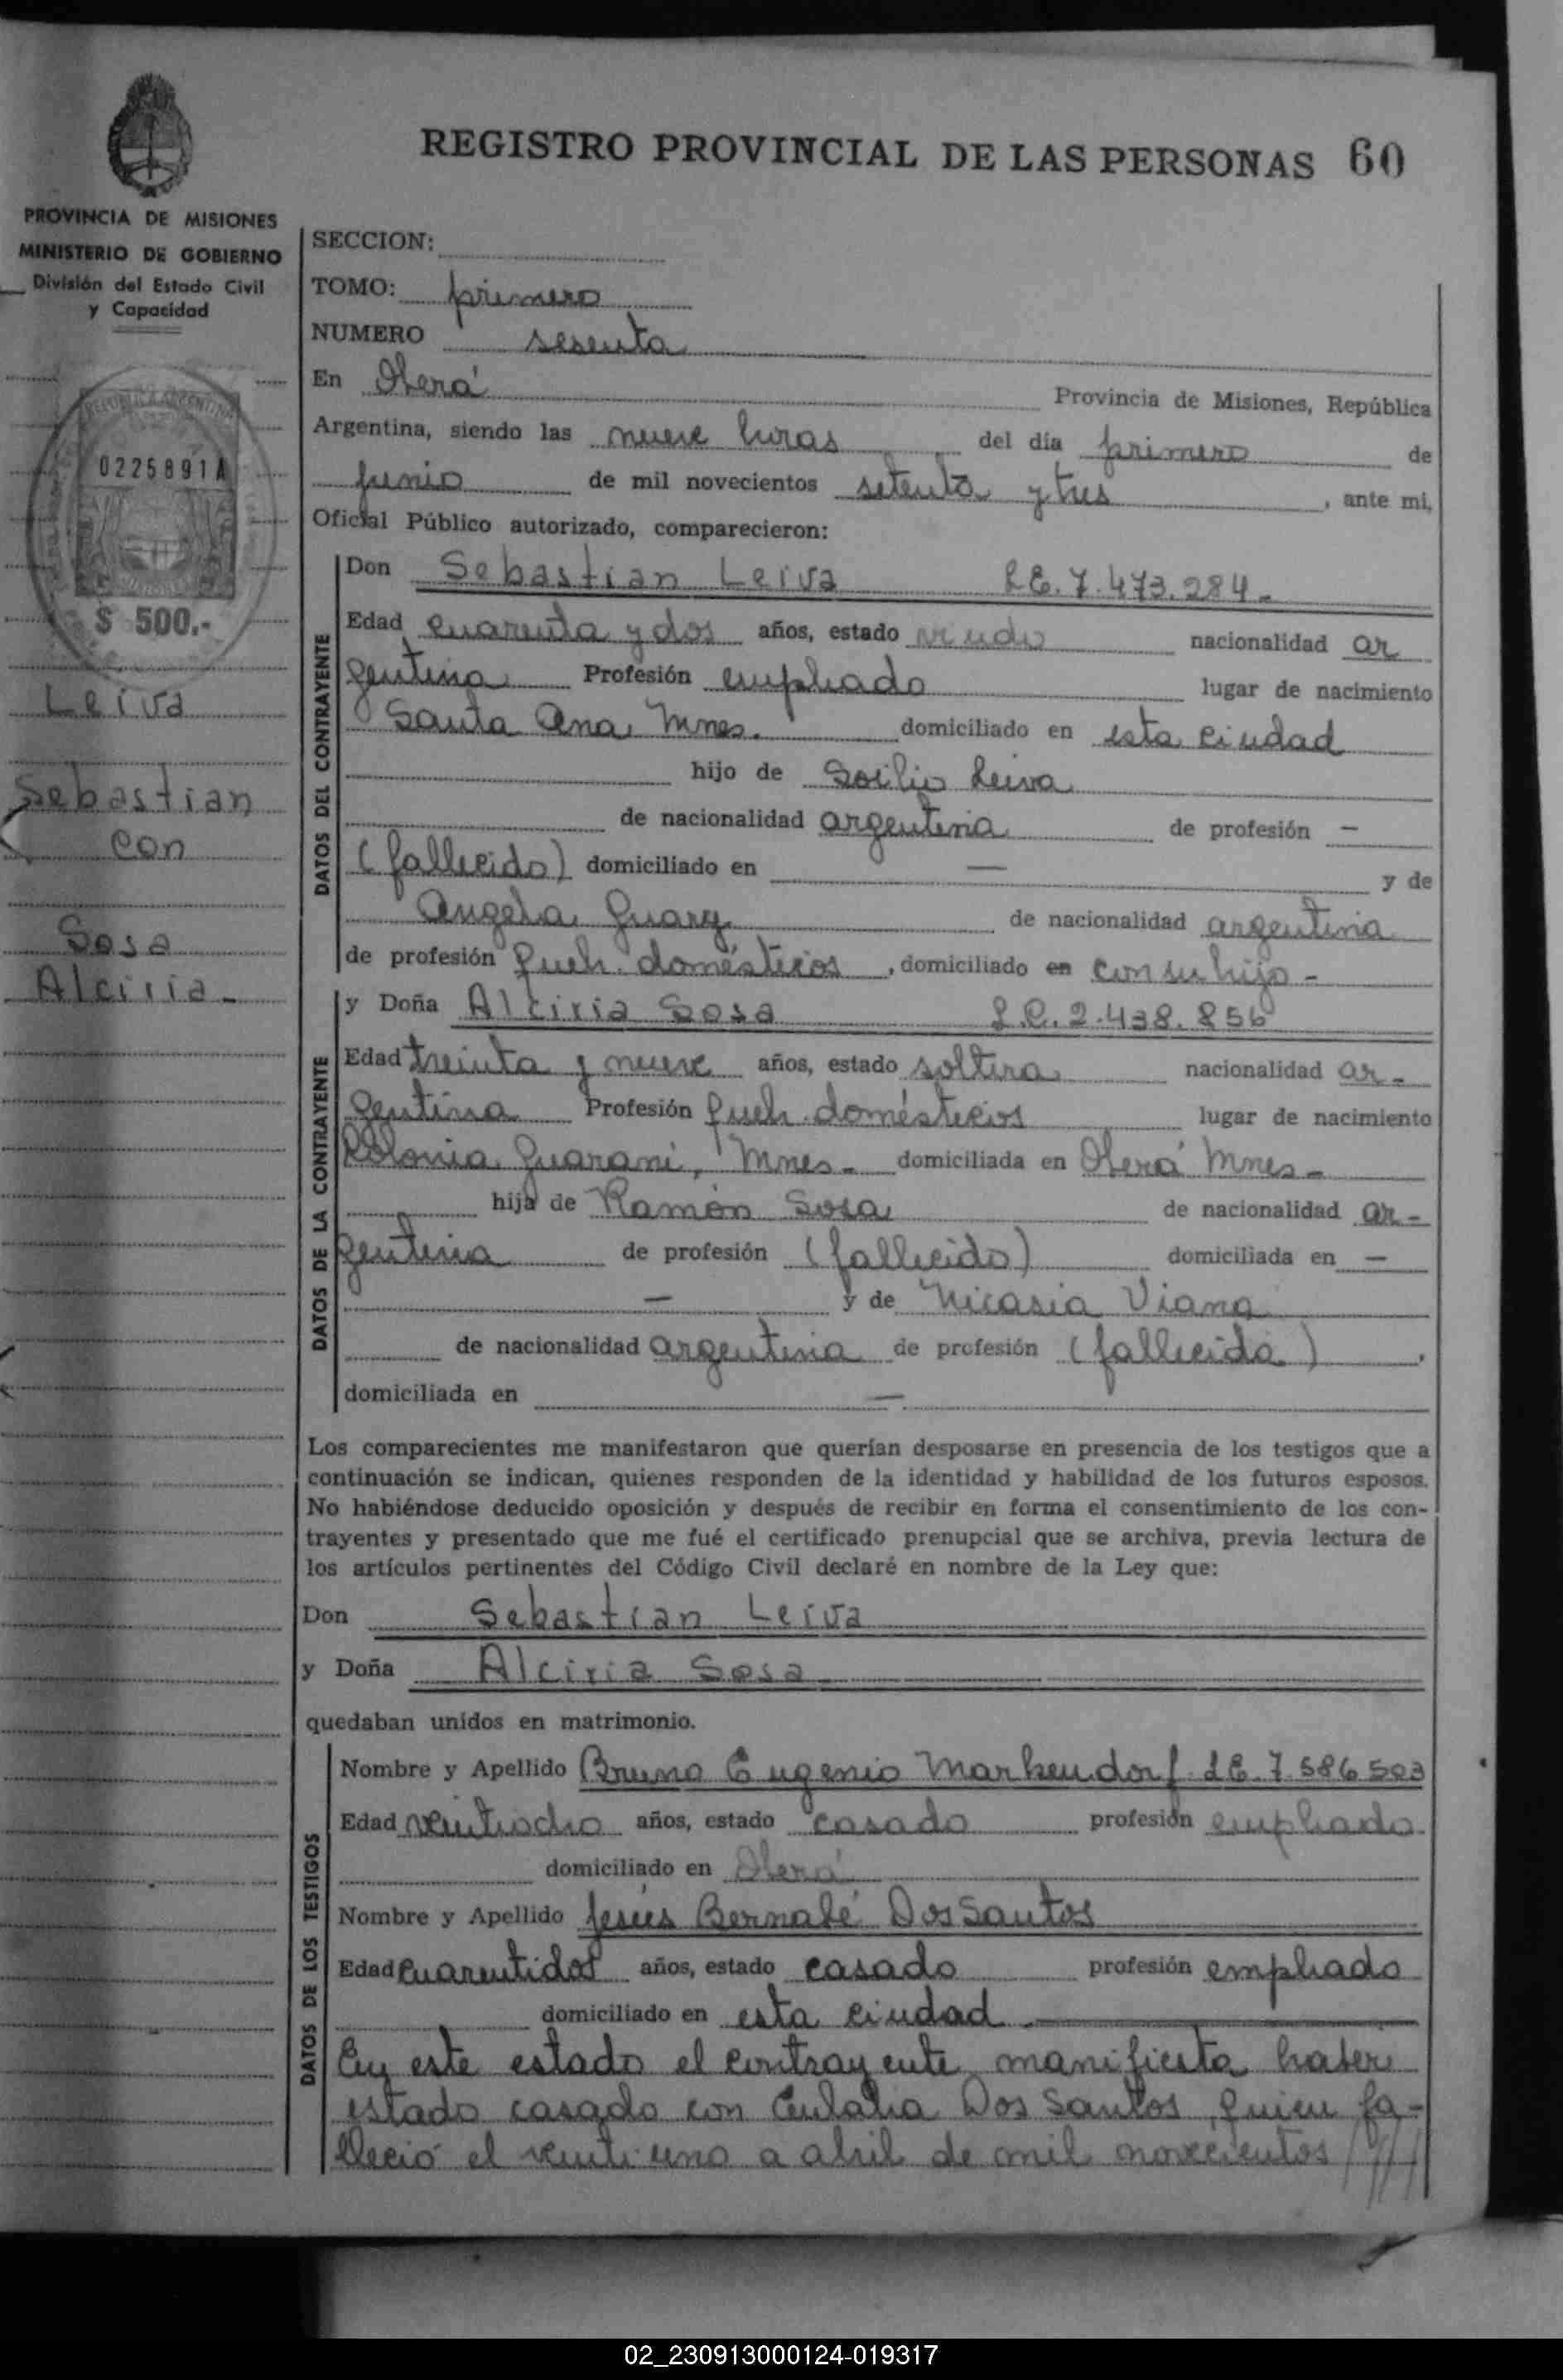 REGISTRO PROVINCIAL DE LAS PERSONAS 60
PROVINCIA DE MISIONES
MINISTERIO DE GOBIERNO
División del Estado Civil
y Capacidad
REPUBLICA ARGENTINA
0225891A
$ 500.-
Leiva
Sebastian
con
Sosa
Alciria -
SECCION:
TOMO: primero
NUMERO sesenta
En Oberá Provincia de Misiones, República
Argentina, siendo las nueve horas del día primero de
junio de mil novecientos setenta y tres, ante mi,
Oficial Público autorizado, comparecieron:
DATOS DEL CONTRAYENTE
Don Sebastian Leiva L.E. 7.473.284-
Edad cuarenta y dos años, estado viudo nacionalidad ar
gentina Profesión empleado lugar de nacimiento
Santa Ana, Mnes. domiciliado en esta ciudad
hijo de Leiva
de nacionalidad argentina de profesión -
(fallecido) domiciliado en — y de
Angela de nacionalidad argentina
de profesión Queh. domésticos, domiciliado en con su hijo -
DATOS DE LA CONTRAYENTE
y Doña Alciria Sosa L.C. 2.438.856
Edad treinta y nueve años, estado soltera nacionalidad ar-
gentina Profesión queh. domésticos lugar de nacimiento
Colonia Guaraní, Mnes- domiciliada en Oberá Mnes-
hija de Ramón Sosa de nacionalidad ar-
gentina de profesión (fallecido) domiciliada en —
— y de Nicasia Viana
de nacionalidad argentina de profesión (fallecida),
domiciliada en —
Los comparecientes me manifestaron que querían desposarse en presencia de los testigos que a
continuación se indican, quienes responden de la identidad y habilidad de los futuros esposos.
No habiéndose deducido oposición y después de recibir en forma el consentimiento de los con-
trayentes y presentado que me fué el certificado prenupcial que se archiva, previa lectura de
los artículos pertinentes del Código Civil declaré en nombre de la Ley que:
Don Sebastian Leiva
y Doña Alciria Sosa
quedaban unidos en matrimonio.
DATOS DE LOS TESTIGOS
Nombre y Apellido Bruno Eugenio Markendorf L.E. 7.586.503
Edad veintiocho años, estado casado profesión empleado
domiciliado en Oberá
Nombre y Apellido Jesús Bernabé Dos Santos
Edad cuarentidos años, estado casado profesión empleado
domiciliado en esta ciudad.
En este estado el contrayente manifiesta haber
estado casado con Eulalia Dos Santos, quien fa-
lleció el veintiuno a abril de mil novecientos ////
02_230913000124-019317